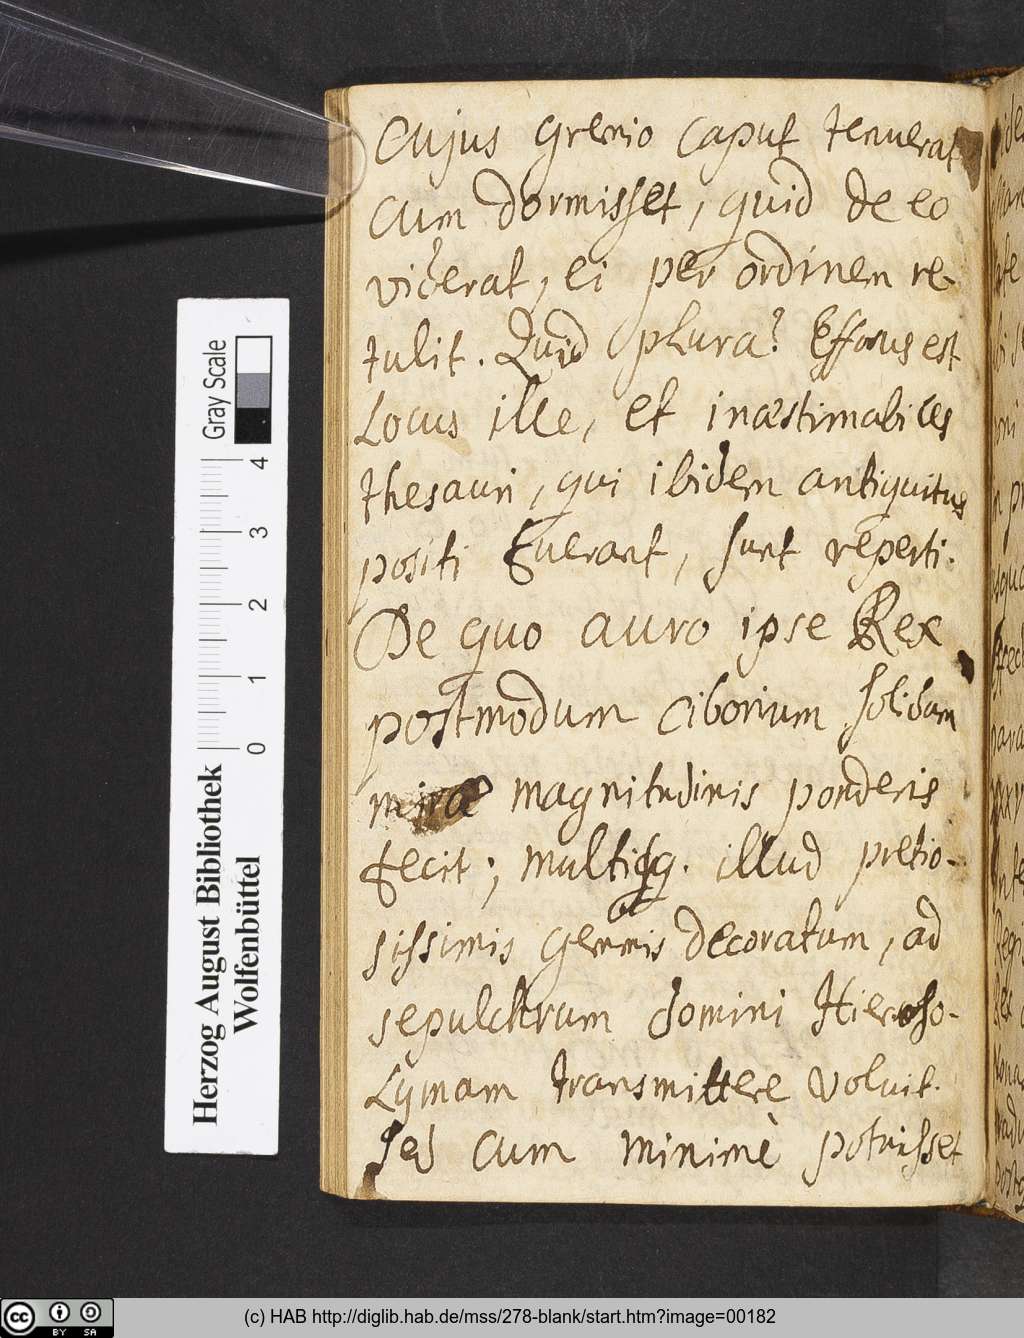 Cujus gremio caput tenuerat
cum dormisset, quid de eo
viderat, ei per ordinem re-
tulit. Quid plura? Effossus est
Locus ille, et inæstimabiles
thesauri, qui ibidem antiquitus
positi fuerant, sunt reperti.
De quo auro ipse Rex
postmodum ciborium solidum
miræ magnitudinis ponderis
fecit; multisq. illud pretio-
sissimis gemmis decoratum, ad
sepulchrum domini Hieroso-
Lymam transmittere voluit.
sed cum minimè potuisset
Gray Scale
4
3
2
1
0
Herzog August Bibliothek
Wolfenbüttel
cc BY SA
(c) HAB http://diglib.hab.de/mss/278-blank/start.htm?image=00182